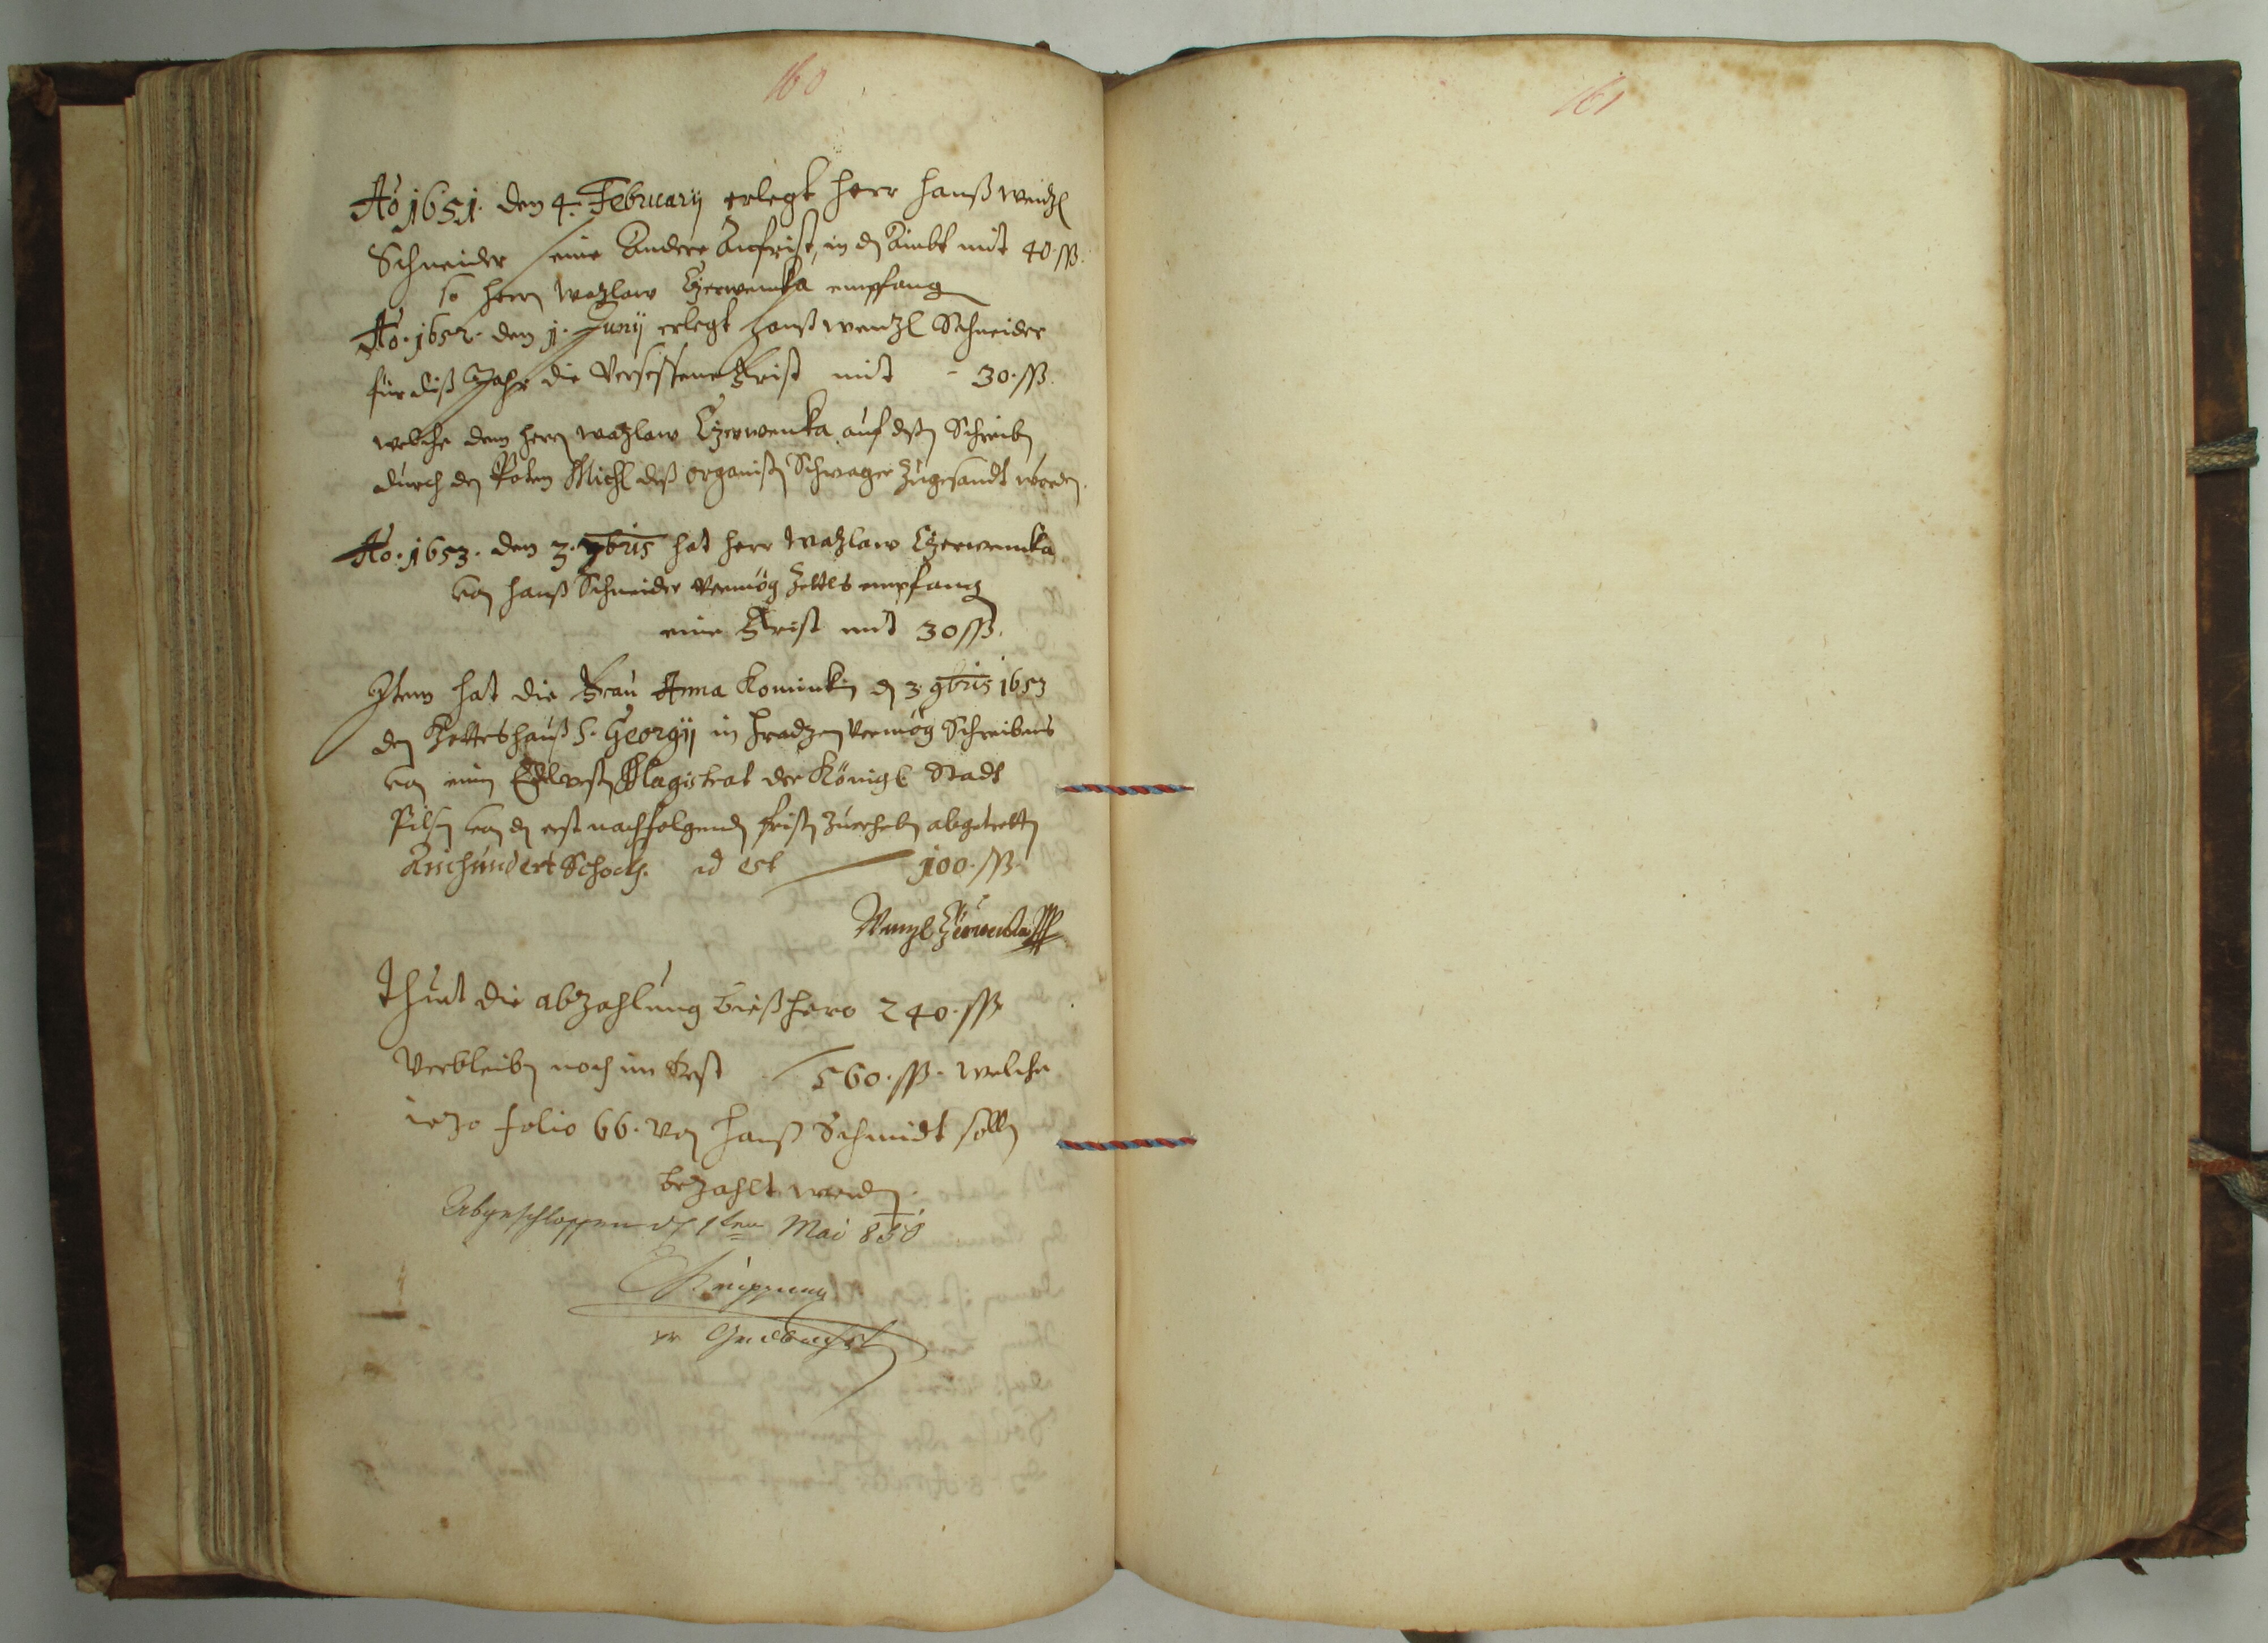 160
Ao 1651. den 4. February erlegt Herr Hanß Wentzl
Schneider seine Andere Anfrist, in dz Ambt mit 40 ßß.
so Herrn Watzlaw Czerwenka empfang
Ao. 1652. den 1. Juny erlegt Hanß Wentzl Schneider
für diß Jahr die Versessene Frist mit - 30. ßß.
welche dem Herrn Watzlaw Czerwenka auf deßen Schreiben
durch den Boten Michl deß Organisten Schwager Zugesandt worden.
Ao. 1653. den 3. 9bris hat Herr Watzlaw Czerwenka
von Hanß Schneider Vermög Zettls empfang
eine Frist mit 30 ßß.
Item hat die Frau Anna Kominkin den 3. 9bris 1653
den Gotteshauß S. Georgy in Vermög Schreibens
von einem Edlvesten Magistrat der Königl Stadt
Pilsen von den erst nachfolgenden fristen Zuerheben abgetretten
Einhundert Schockh. id est 100. ßß.
Wenzl Czerwenka
Thuet die abzahlung bießhero 240. ßß
Verbleiben noch im Rest 560. ßß. welche
iezo folio 66. von Hanß Schmidt sollen
bezahlt werden.
Abgeschlossen den 1ten Mai 850
161